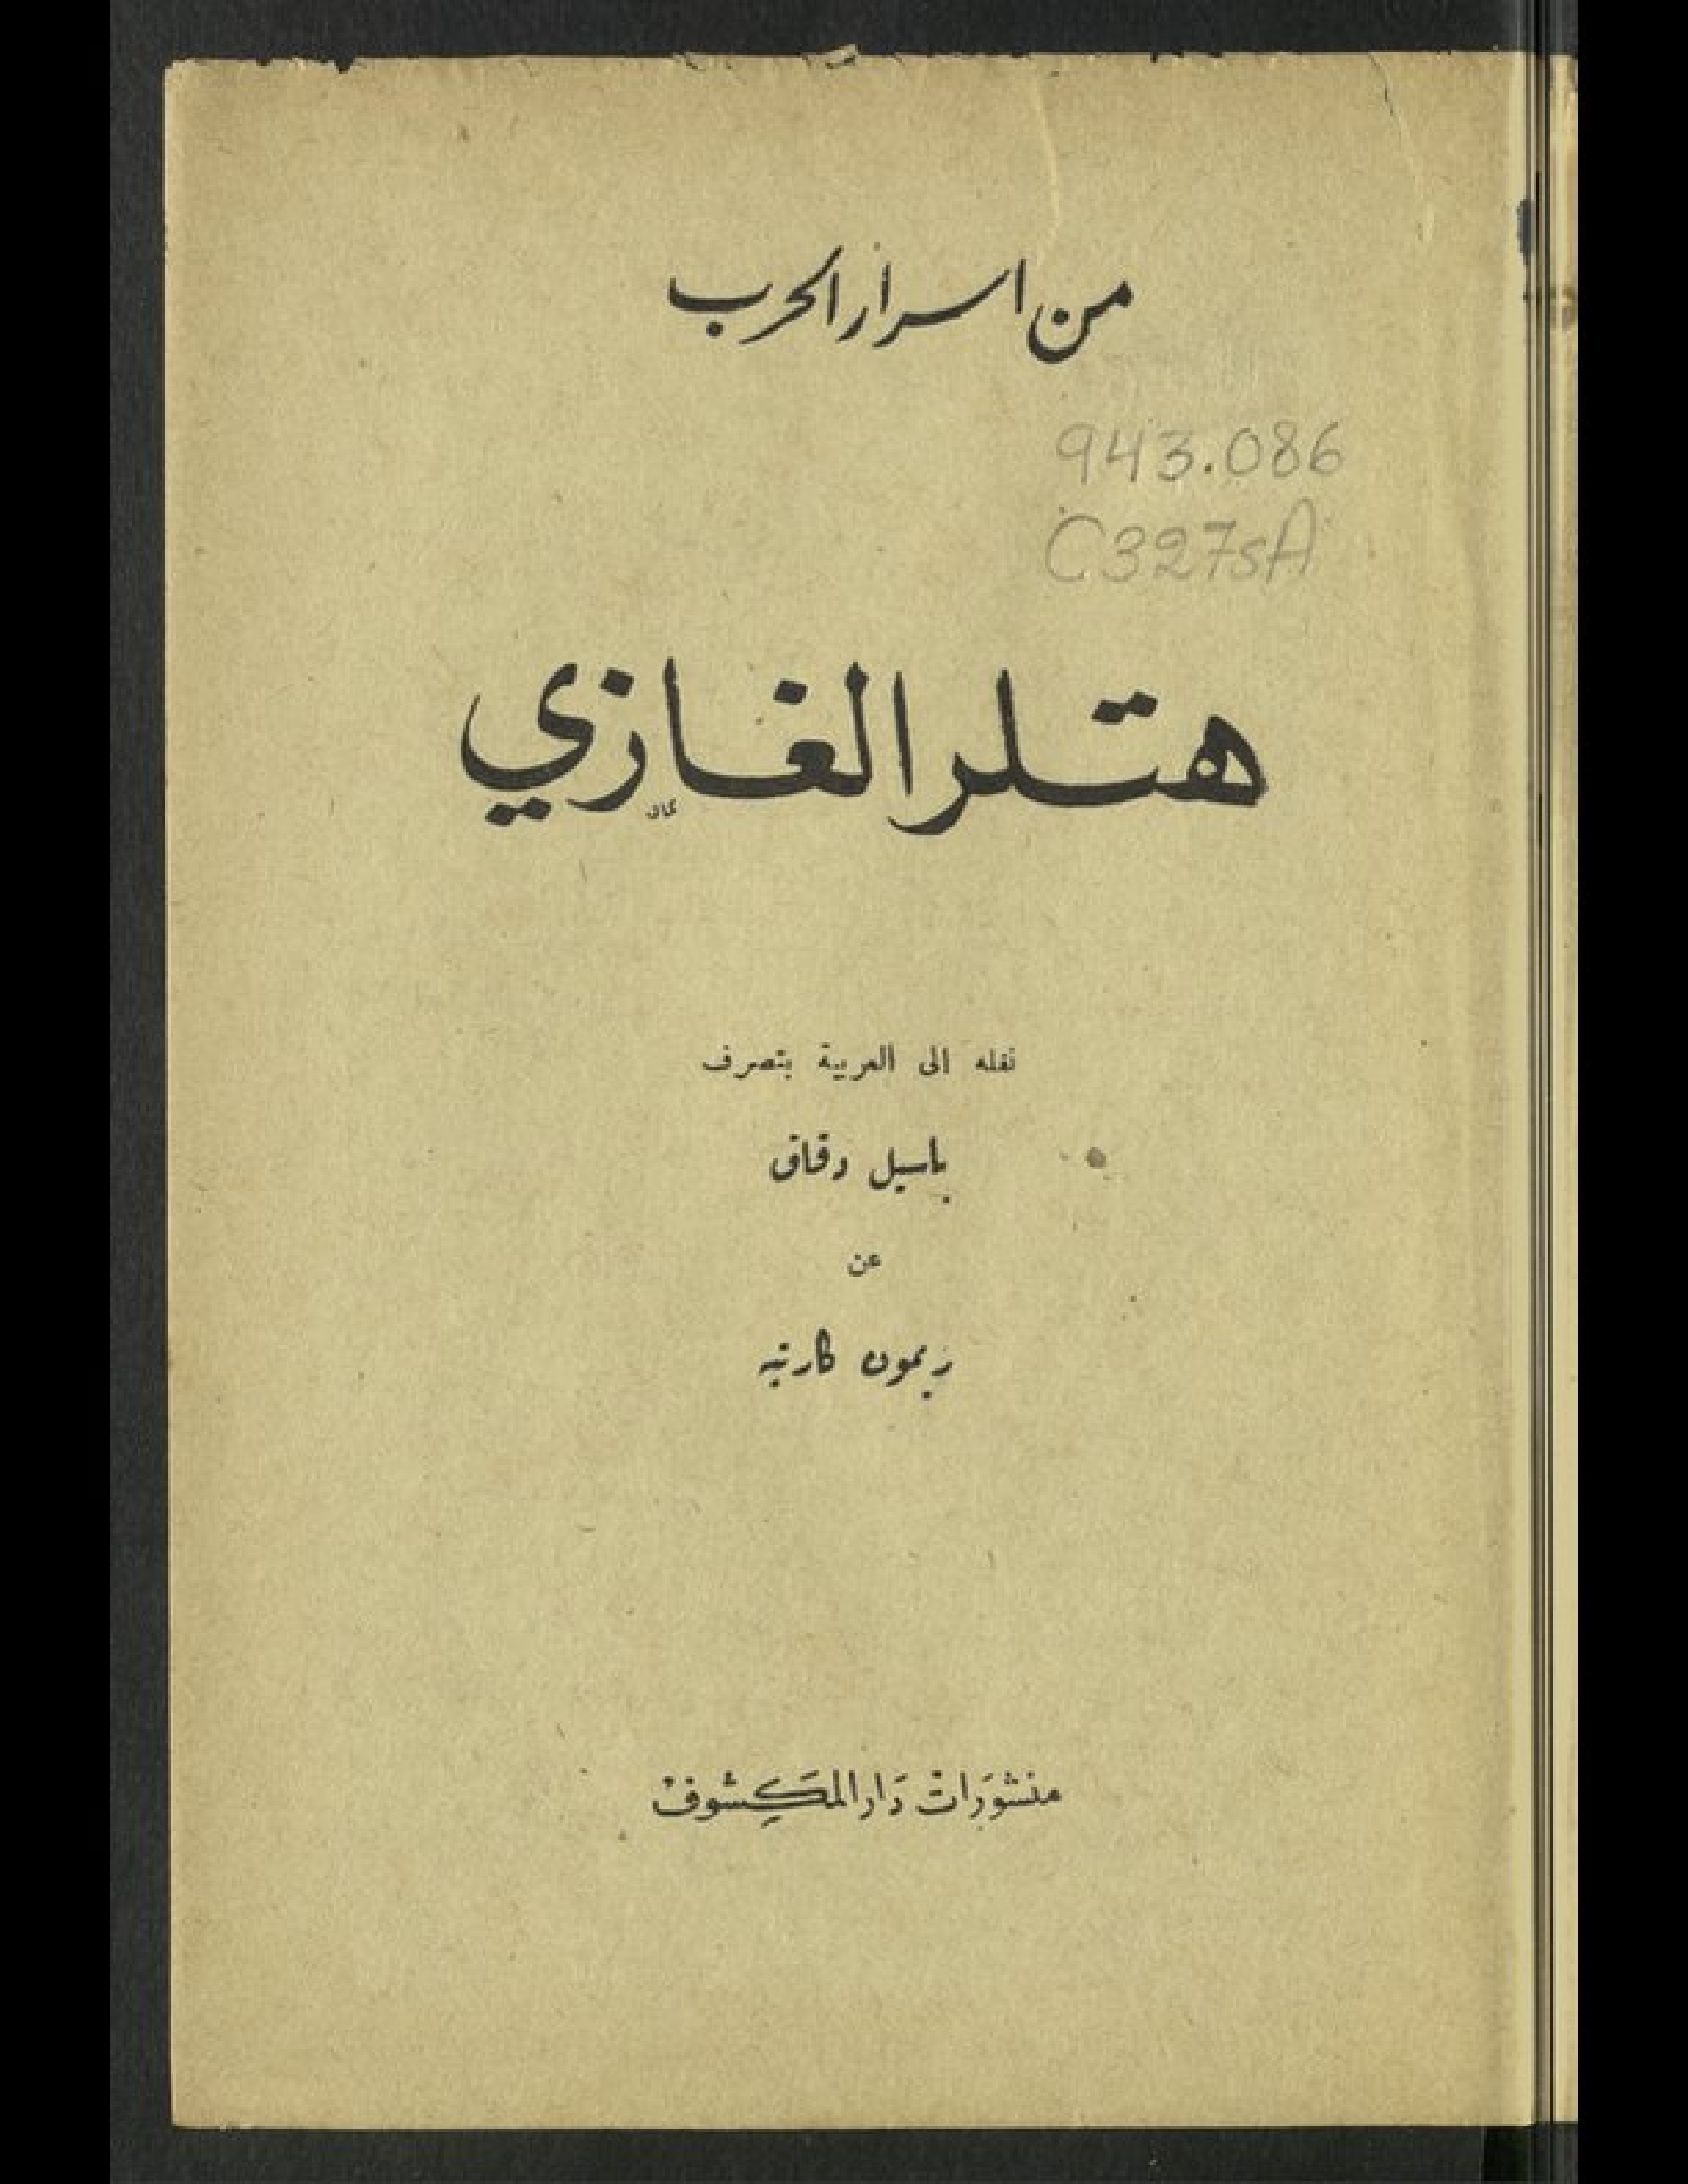 من اسرار الحرب
943.086
C327sA
هتلر الغازي
نقله الى العربية بتصرف
باسيل دقاق
عن
ريمون كارتيه
منشورات دار المكشوف